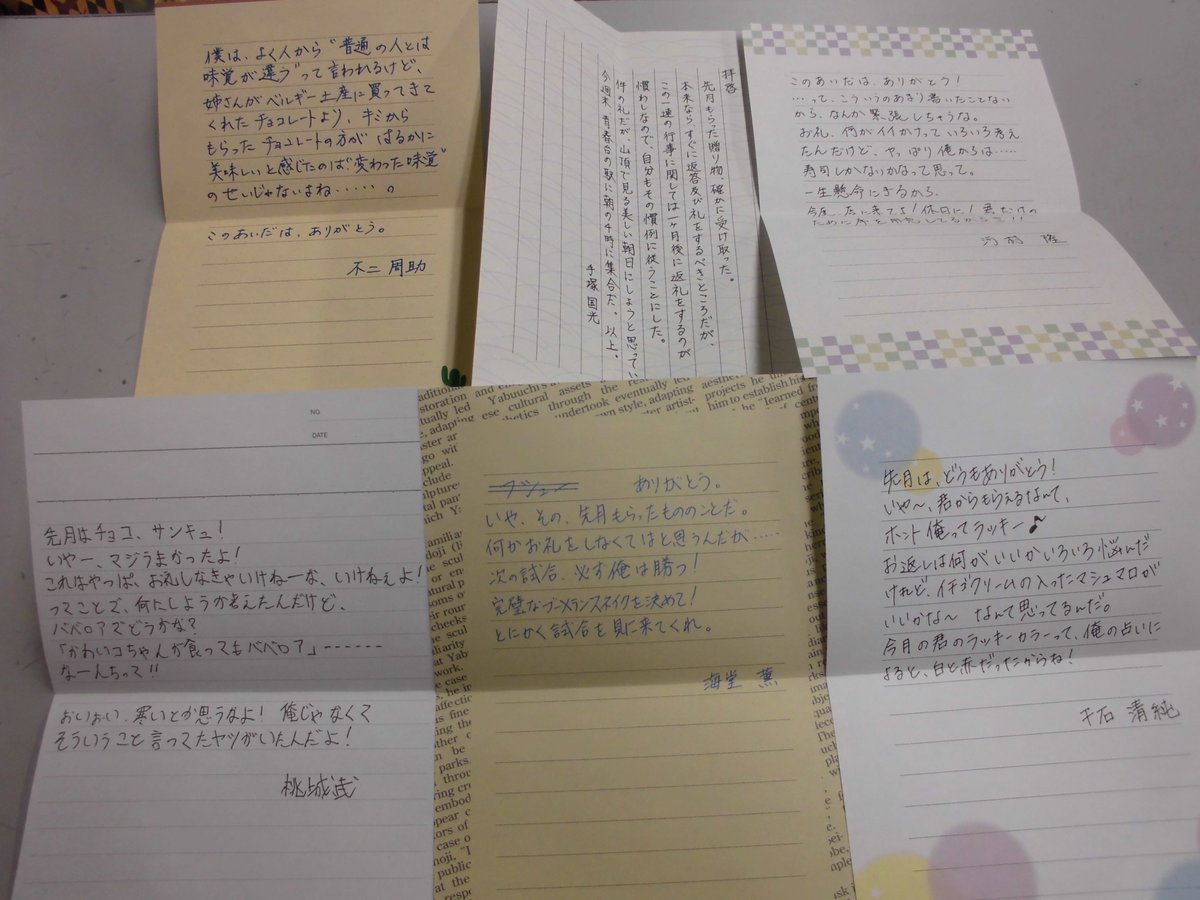 僕は、よく人から“普通の人とは
味覚が違う”って言われるけど、
姉さんがベルギー土産に買ってきて
くれたチョコレートより、キミから
もらったチョコレートの方が はるかに
美味しいと感じたのは“変わった味覚”
のせいじゃないよね‥‥‥。
このあいだは、ありがとう。
不二 周助
拝啓
先月もらった贈り物 確かに受け取った。
本来なら、すぐに返答及び礼をするべきところだが、
この一連の行事に関しては一ヶ月後に返礼をするのが
慣わしなので、自分もその慣例に従うことにした。
件の礼だが、山頂で見る美しい朝日にしようと思ってい
今週末 青春台の駅に朝の4時に集合だ。以上。
手塚 国光
このあいだは、ありがとう!
…って、こういうのあまり書いたことない
から、なんか緊張しちゃうな。
お礼、何がイイかけっていろいろ考え
たんだけど、やっぱり俺からは……
寿司しかないかなって思って。
一生懸命にぎるから
今度 店に来てよ!休日に!君だけの
河村 隆
NO.
DATE
先月はチョコ、サンキュ!
いやー、マジうまかったよ!
これはやっぱ、お礼しなきゃいけねーな、いけねぇよ!
ってことで、何にしようか考えたんだけど、
ババロアでどうかな?
「かわいコちゃんが食ってもババロア」------
なーんちって!!
おいおい、寒いとか思うなよ! 俺じゃなくて
そういうこと言ってたヤツがいたんだよ!
桃城武
ありがとう。
いや、その、先月もらったもののことだ。
何かお礼をしなくてはと思うんだが……
次の試合、必ず俺は勝つ!
完璧なブーメランスネイクを決めて!
とにかく試合を見に来てくれ。
海堂 薫
先月は、どうもありがとう!
いや〜、君からもらえるなんて、
ホント俺ってラッキー♪
お返しは何がいいかいろいろ悩んだ
けれど、イチゴクリームの入ったマシュマロが
いいかな〜 なんて思ってるんだ。
今月の君のラッキーカラーって、俺の占いに
よると、白と赤だったからね!
千石 清純